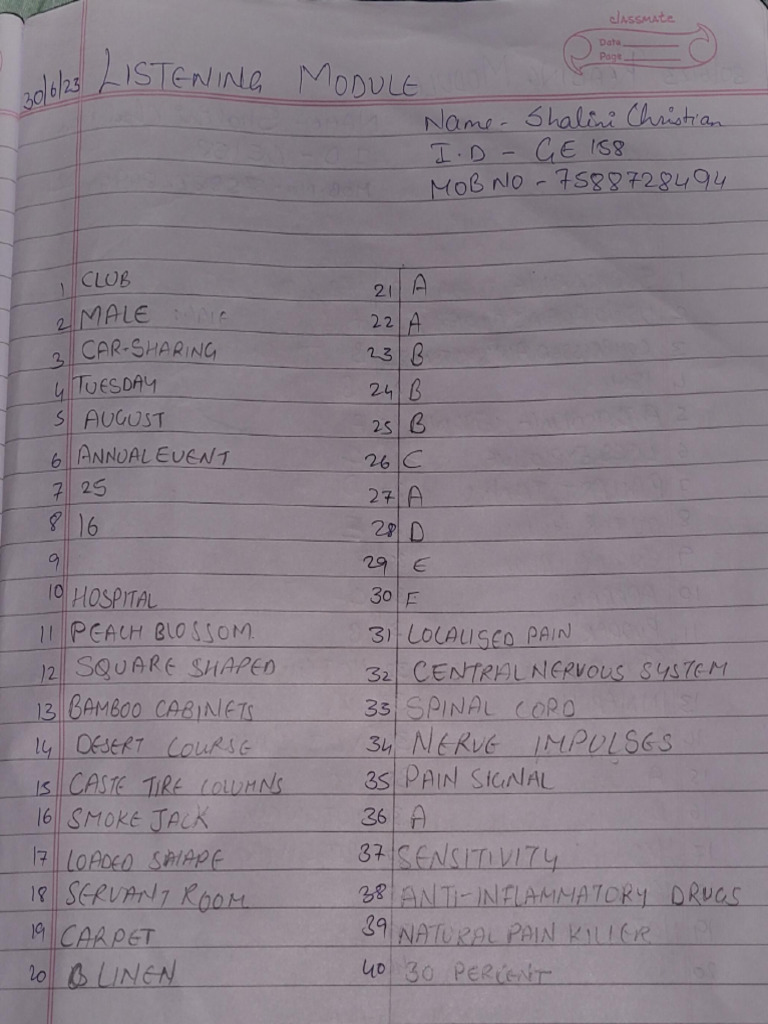 classmate
Date
Page
30/6/23 LISTENING MODULE
Name - Shalini Christian
I.D - GE 158
MOB NO - 7588728494
1 CLUB
2 MALE
3 CAR-SHARING
4 TUESDAY
5 AUGUST
6 ANNUAL EVENT
7 25
8 16
9
10 HOSPITAL
11 PEACH BLOSSOM
12 SQUARE SHAPED
13 BAMBOO CABINETS
14 DESERT COURSE
15 CASTE TIRE COLUMNS
16 SMOKE JACK
17 LOADED SHAPE
18 SERVANT ROOM
19 CARPET
20 B LINEN
21 A
22 A
23 B
24 B
25 B
26 C
27 A
28 D
29 E
30 F
31 LOCALISED PAIN
32 CENTRAL NERVOUS SYSTEM
33 SPINAL CORD
34 NERVE IMPULSES
35 PAIN SIGNAL
36 A
37 SENSITIVITY
38 ANTI-INFLAMMATORY DRUGS
39 NATURAL PAIN KILLER
40 30 PERCENT